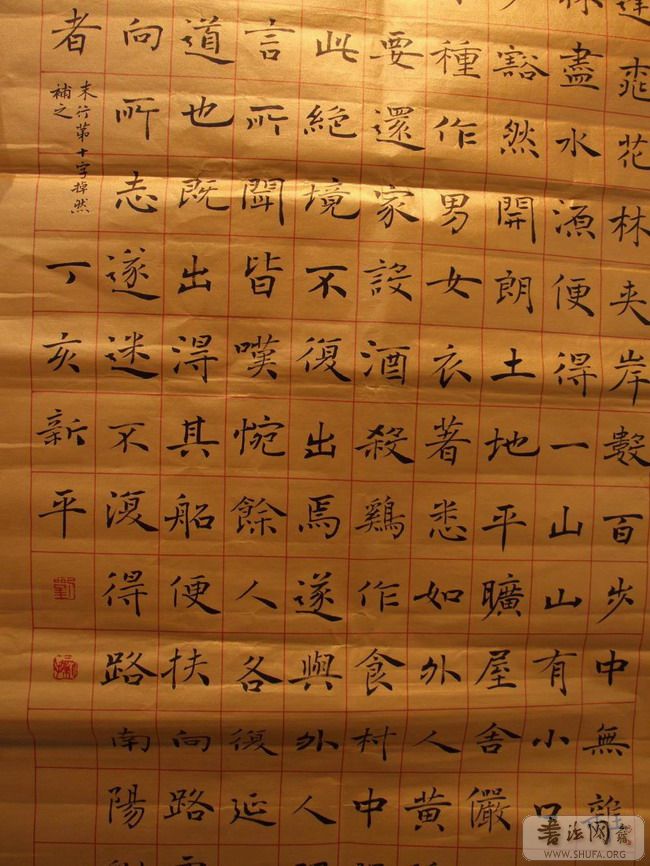 逢桃花林夾岸數百步中無雜
林盡水源便得一山山有小口
豁然開朗土地平曠屋舍儼
種作男女衣著悉如外人黃
要還家設酒殺鷄作食村中
此絕境不復出焉遂與外人
言所聞皆嘆惋餘人各復延
道也既出得其船便扶向路
向所志遂迷不復得路南陽
者
末行第十字掉然
補之
丁亥新平
書法网
WWW.SHUFA.ORG